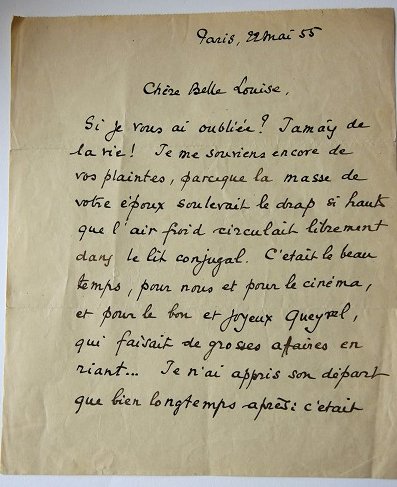 Paris, 22 mai 55
Chère Belle Louise,
Si je vous ai oubliée? Jamây de
la vie! Je me souviens encore de
vos plaintes, parceque la masse de
votre époux soulevait le drap si haut
que l'air froid circulait librement
dans le lit conjugal. C'était le beau
temps, pour nous et pour le cinéma,
et pour le bon et joyeux Queyrel,
qui faisait de grosses affaires en
riant... Je n'ai appris son départ
que bien longtemps après: c'était